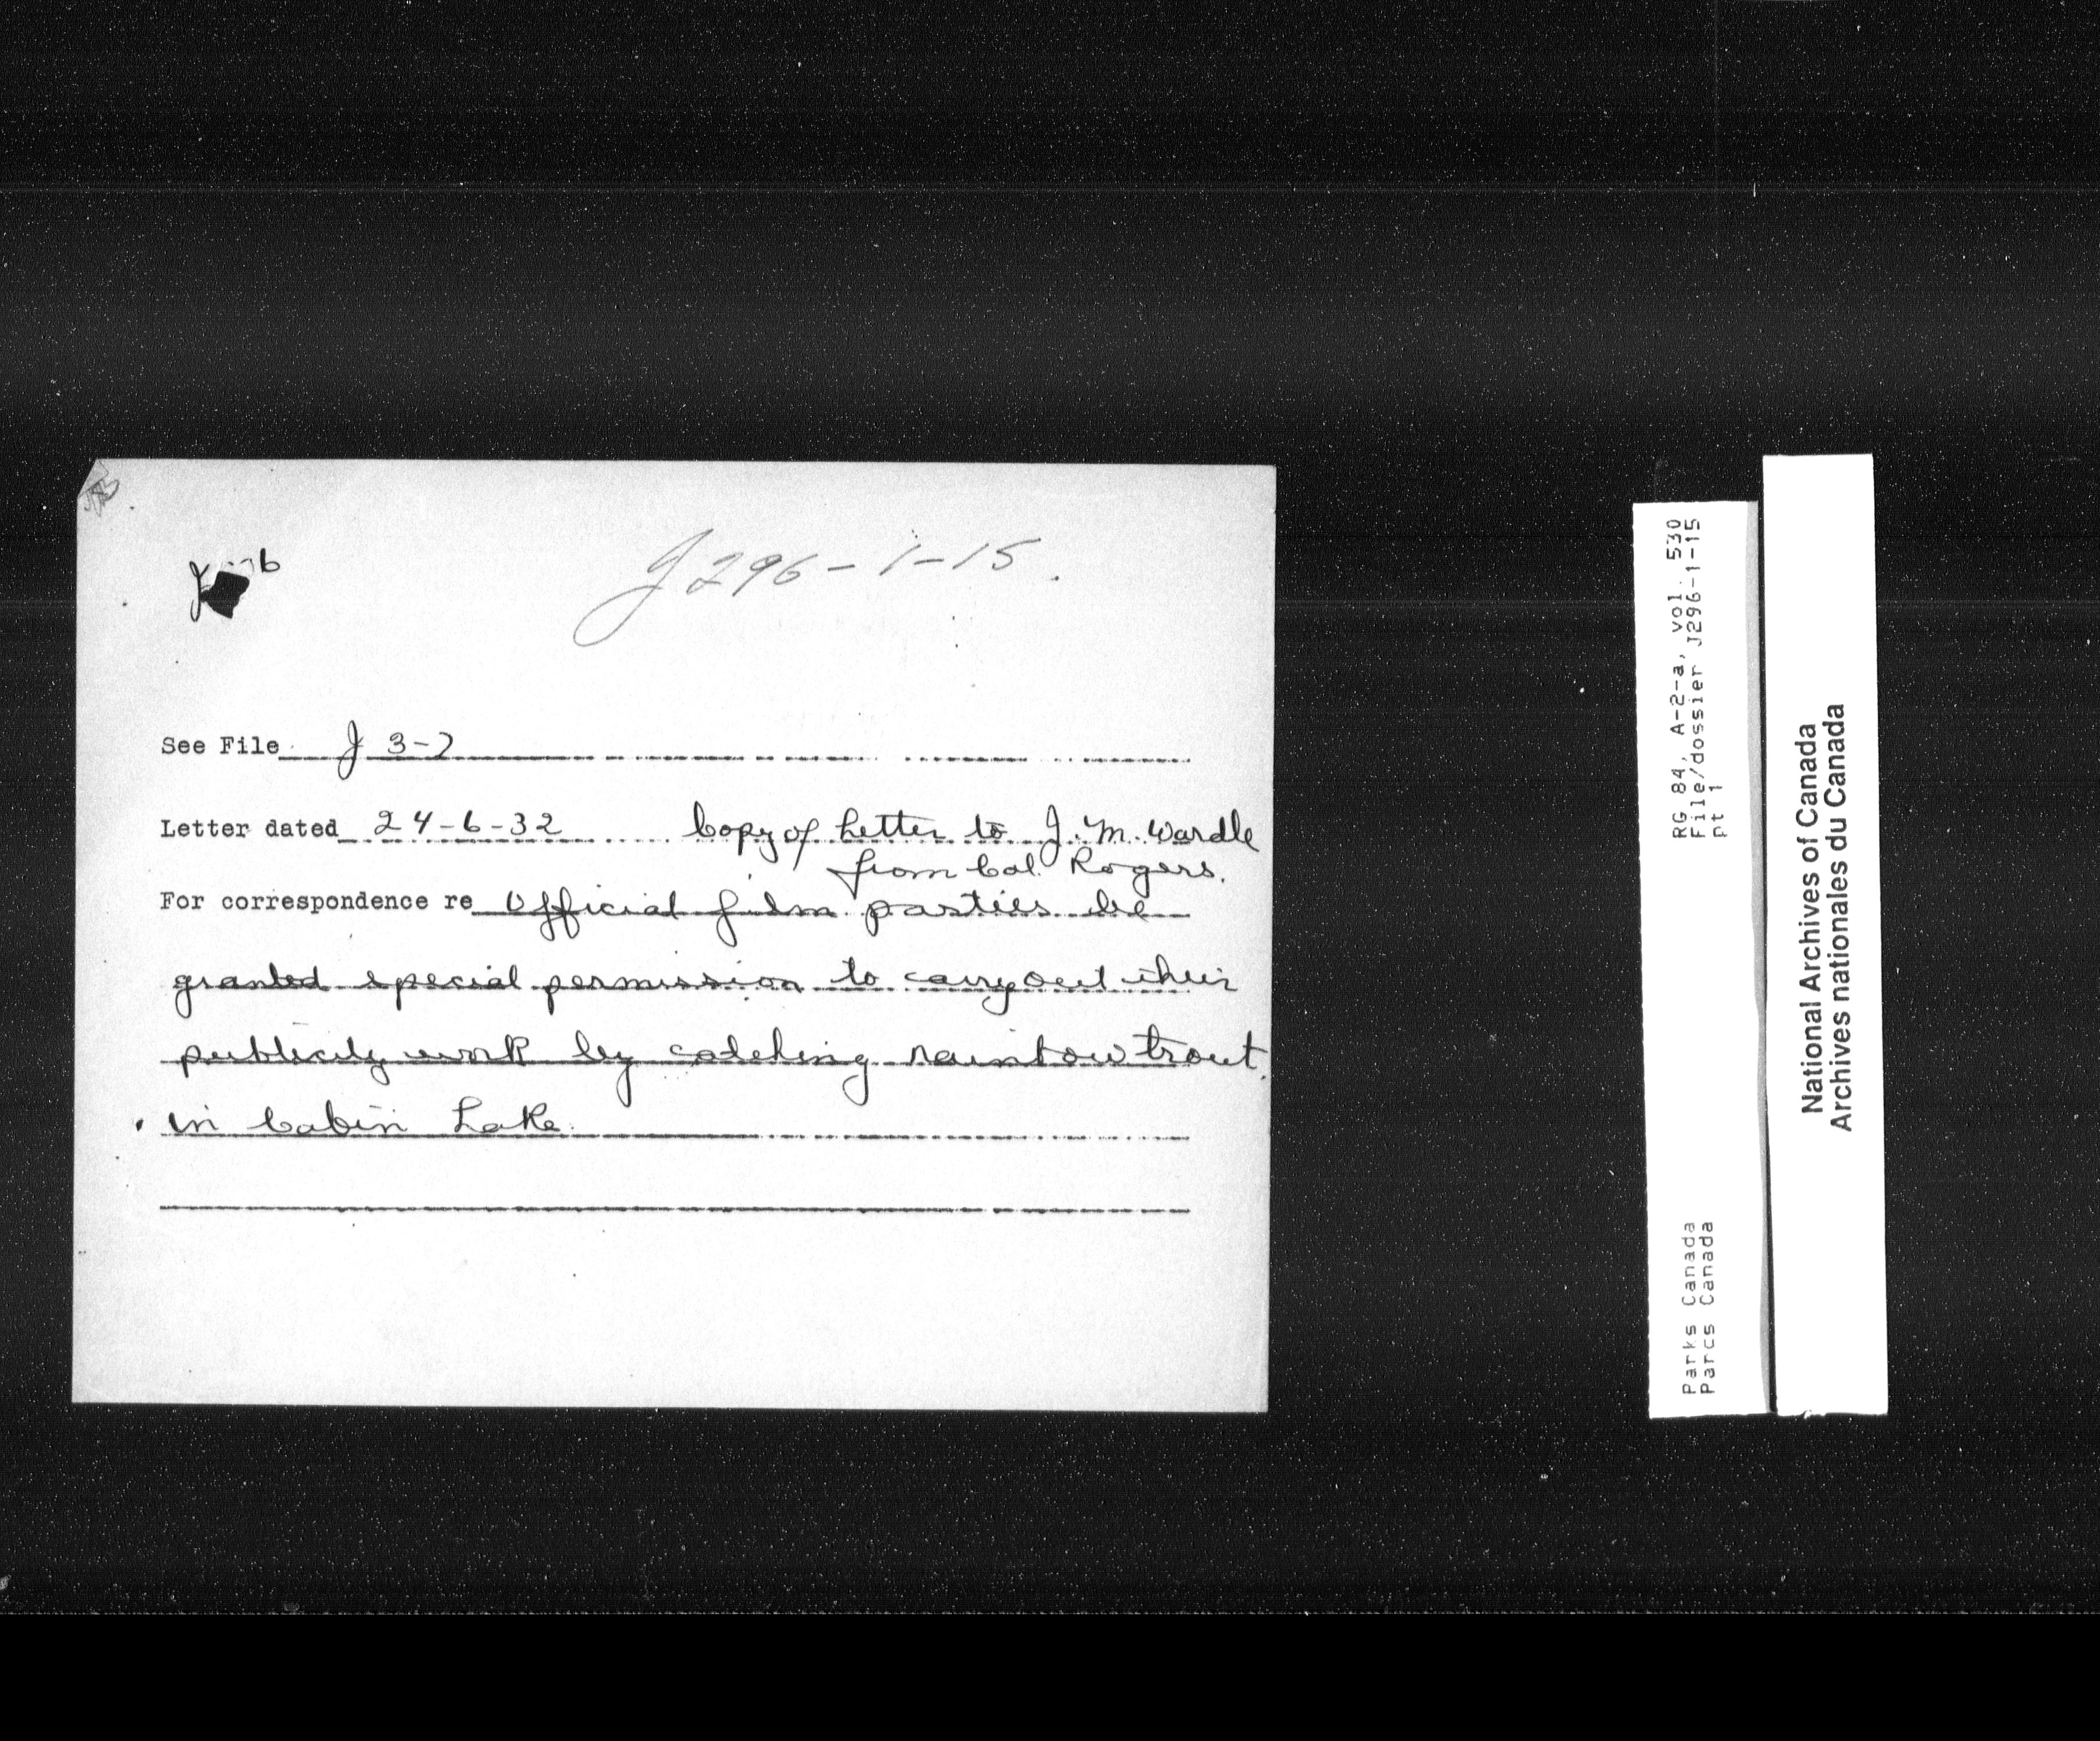 J296-1-15.
See File J 3-2
Letter dated 24-6-32 Copy of Letter to J. M. Wardle
from Col. Rogers.
For correspondence re Official film parties be
granted special permission to carry out their
publicity work by catching rainbow trout
in Cabin Lake.
RG 84, A-2-a, vol. 530
File/dossier J296-1-15
pt 1
Parks Canada
Parcs Canada
National Archives of Canada
Archives nationales du Canada